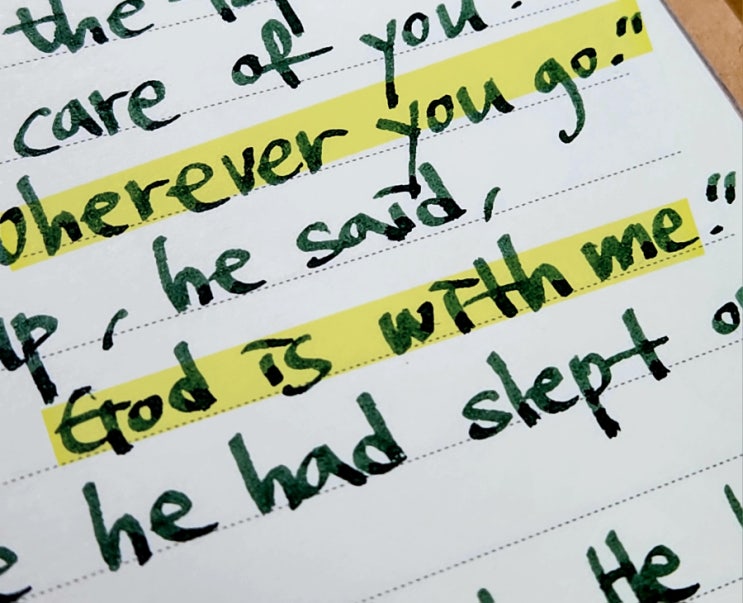 the
care of you.
wherever you go."
up, he said,
God is with me."
he had slept
He